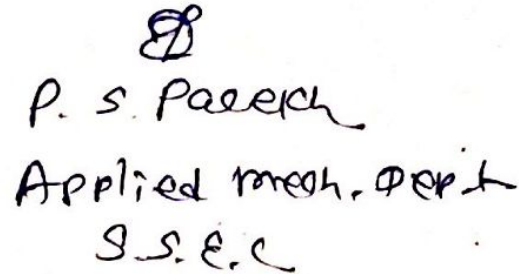 P. S. Parekh
Applied mech. Dept
S.S.E.C